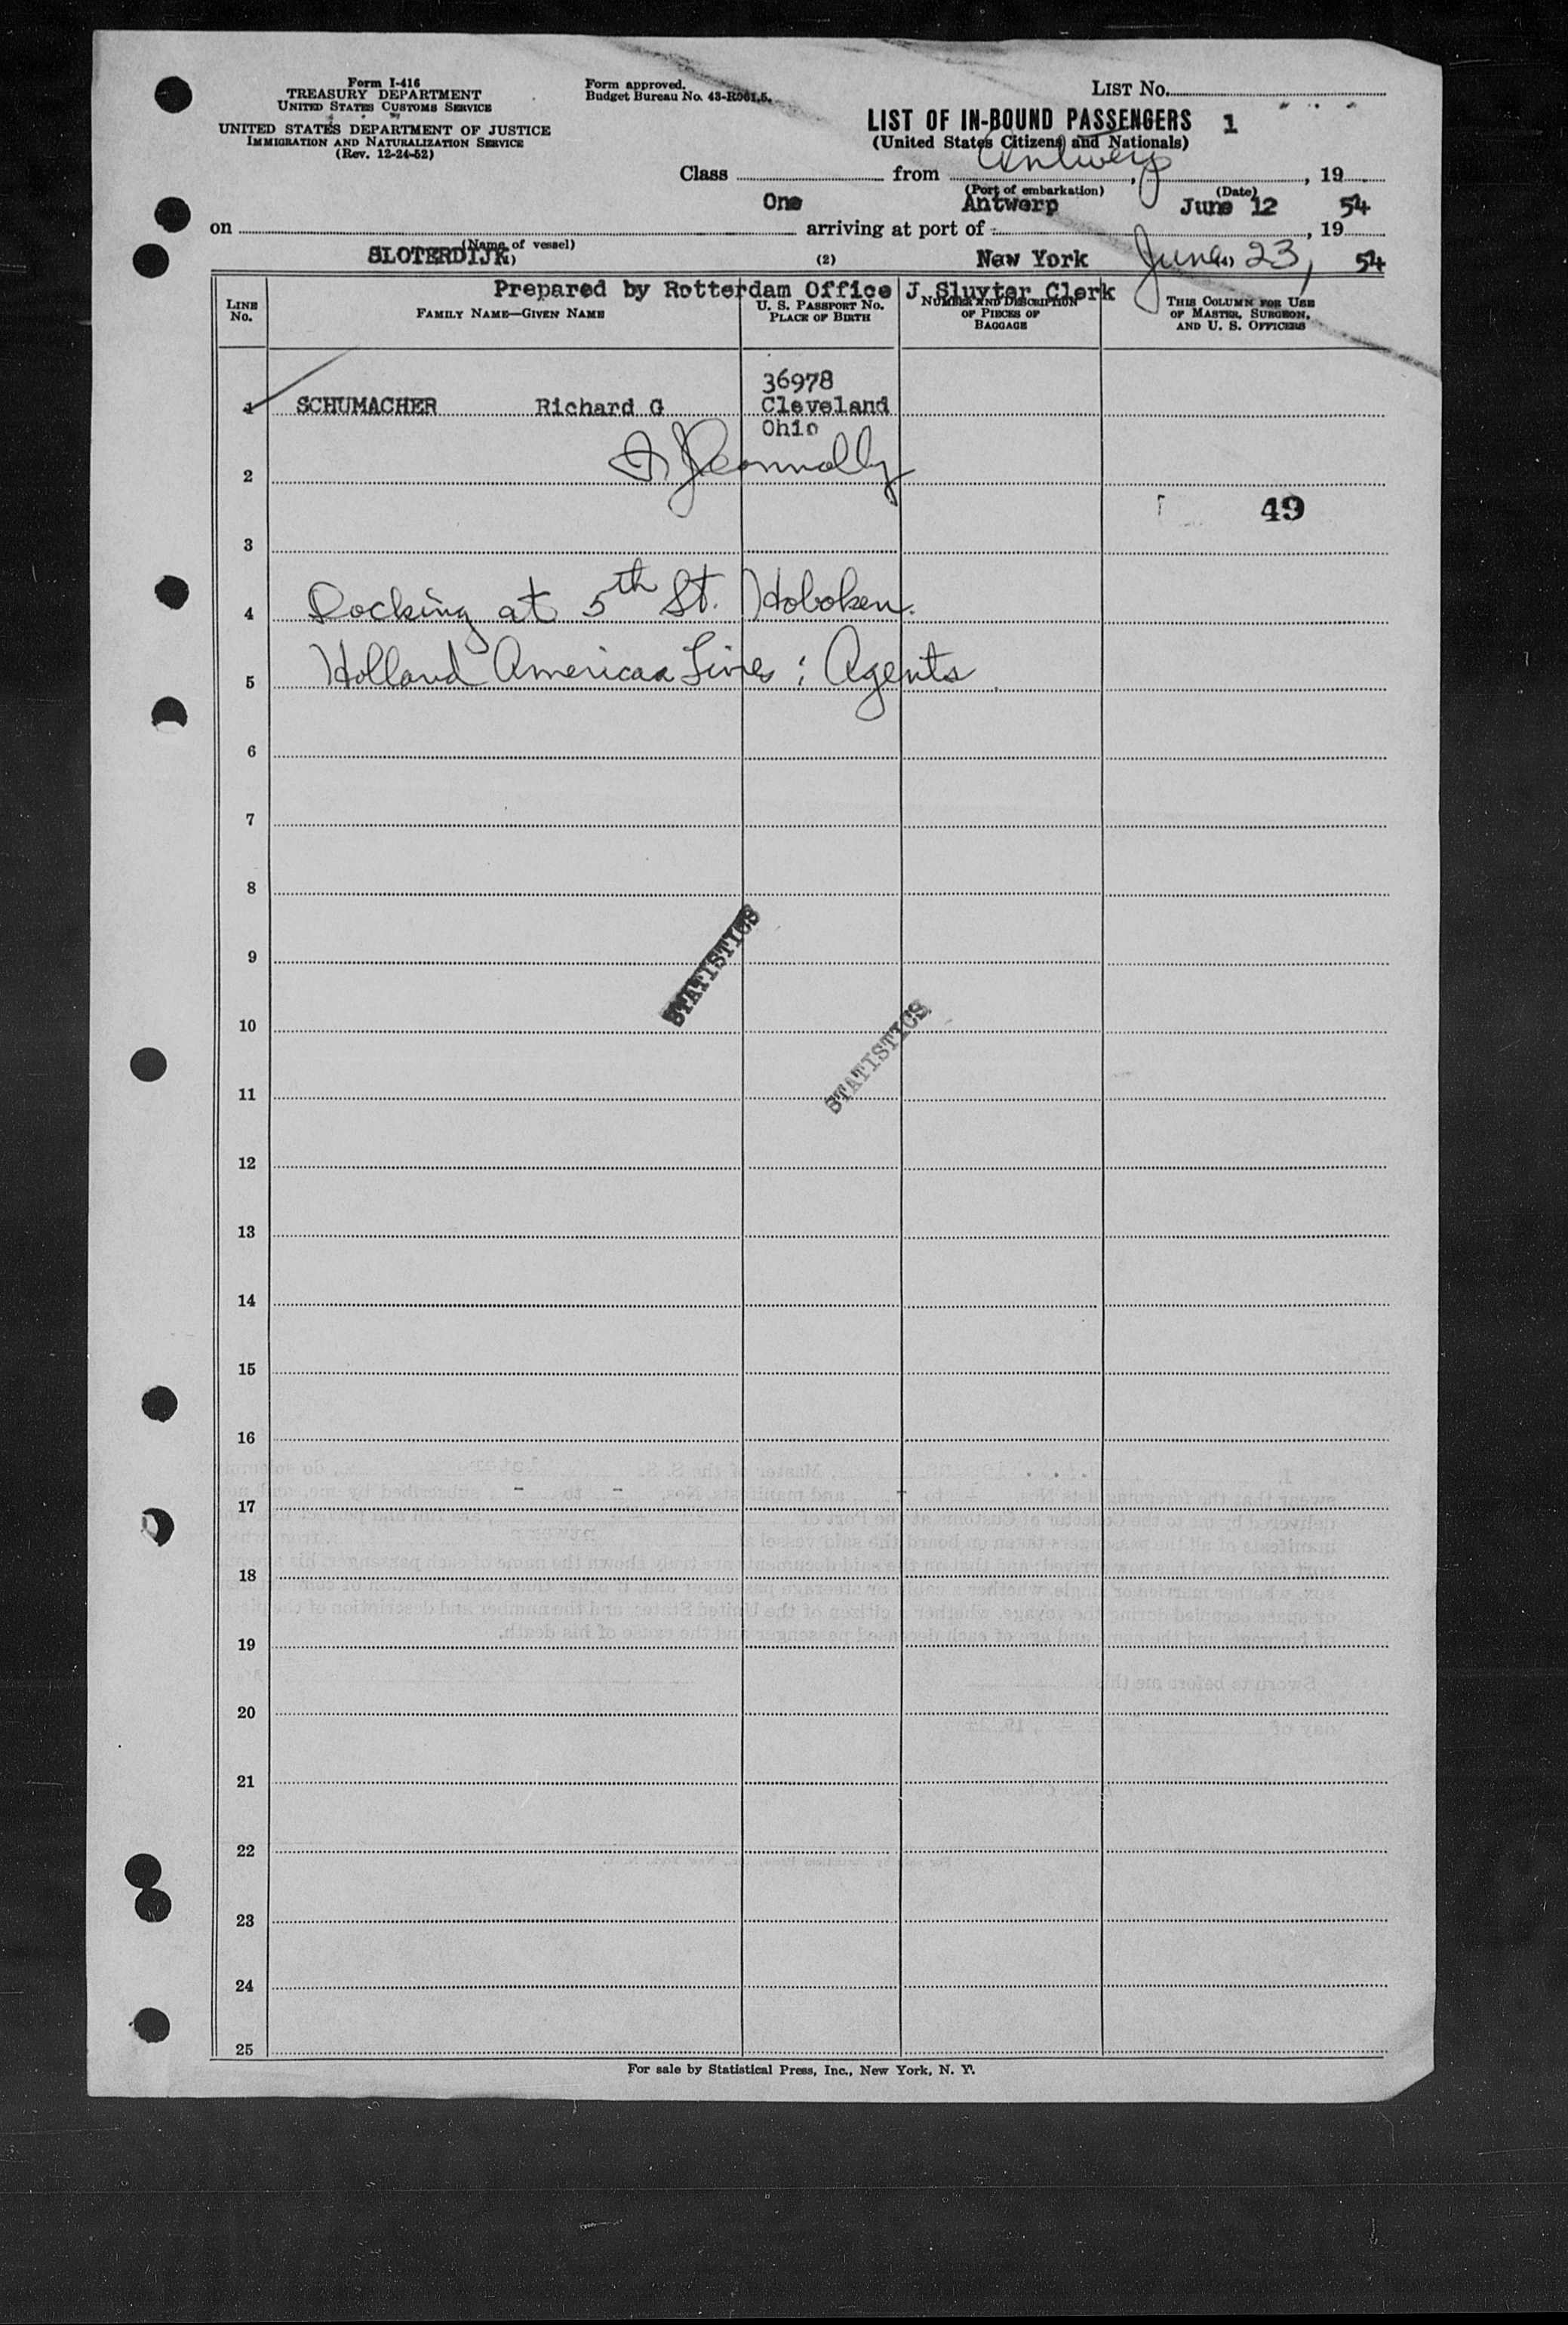 Form I-416
TREASURY DEPARTMENT
UNITED STATES CUSTOMS SERVICE
UNITED STATES DEPARTMENT OF JUSTICE
IMMIGRATION AND NATURALIZATION SERVICE
(Rev. 12-24-52)
Form approved.
Budget Bureau No. 43-R061.5.
LIST NO.
LIST OF IN-BOUND PASSENGERS 1
(United States Citizens and Nationals)
Antwerp
Class from , , 19
(Port of embarkation) (Date)
One Antwerp June 12 54
on arriving at port of , 19
(Name of vessel)
SLOTERDIJK (2) New York June 23, 54
Prepared by Rotterdam Office J. Sluyter Clerk
LINE No.
FAMILY NAME—GIVEN NAME
U. S. PASSPORT NO.
PLACE OF BIRTH
NUMBER AND DESCRIPTION
OF PIECES OF
BAGGAGE
THIS COLUMN FOR USE
OF MASTER, SURGEON,
AND U. S. OFFICERS
36978
1 SCHUMACHER Richard G Cleveland
Ohio
Connolly
2
49
3
4 Docking at 5th St. Hoboken.
5 Holland American Lines : Agents
6
7
8
STATISTICS
9
10
STATISTICS
11
12
13
14
15
16
17
18
19
20
21
22
23
24
25
For sale by Statistical Press, Inc., New York, N. Y.